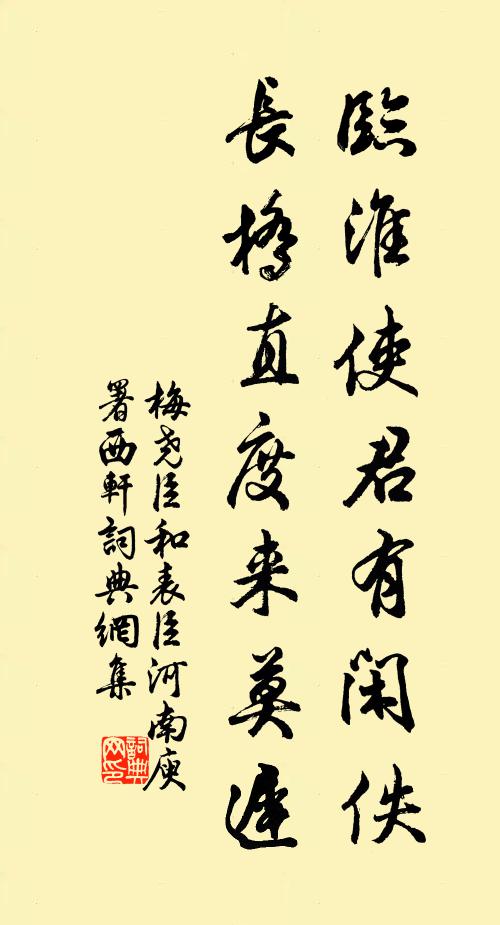 臨淮使君有閑佚
長橋直度来莫遲
梅尧臣和表臣河南庾
署西軒詞典網集
詞典
网印